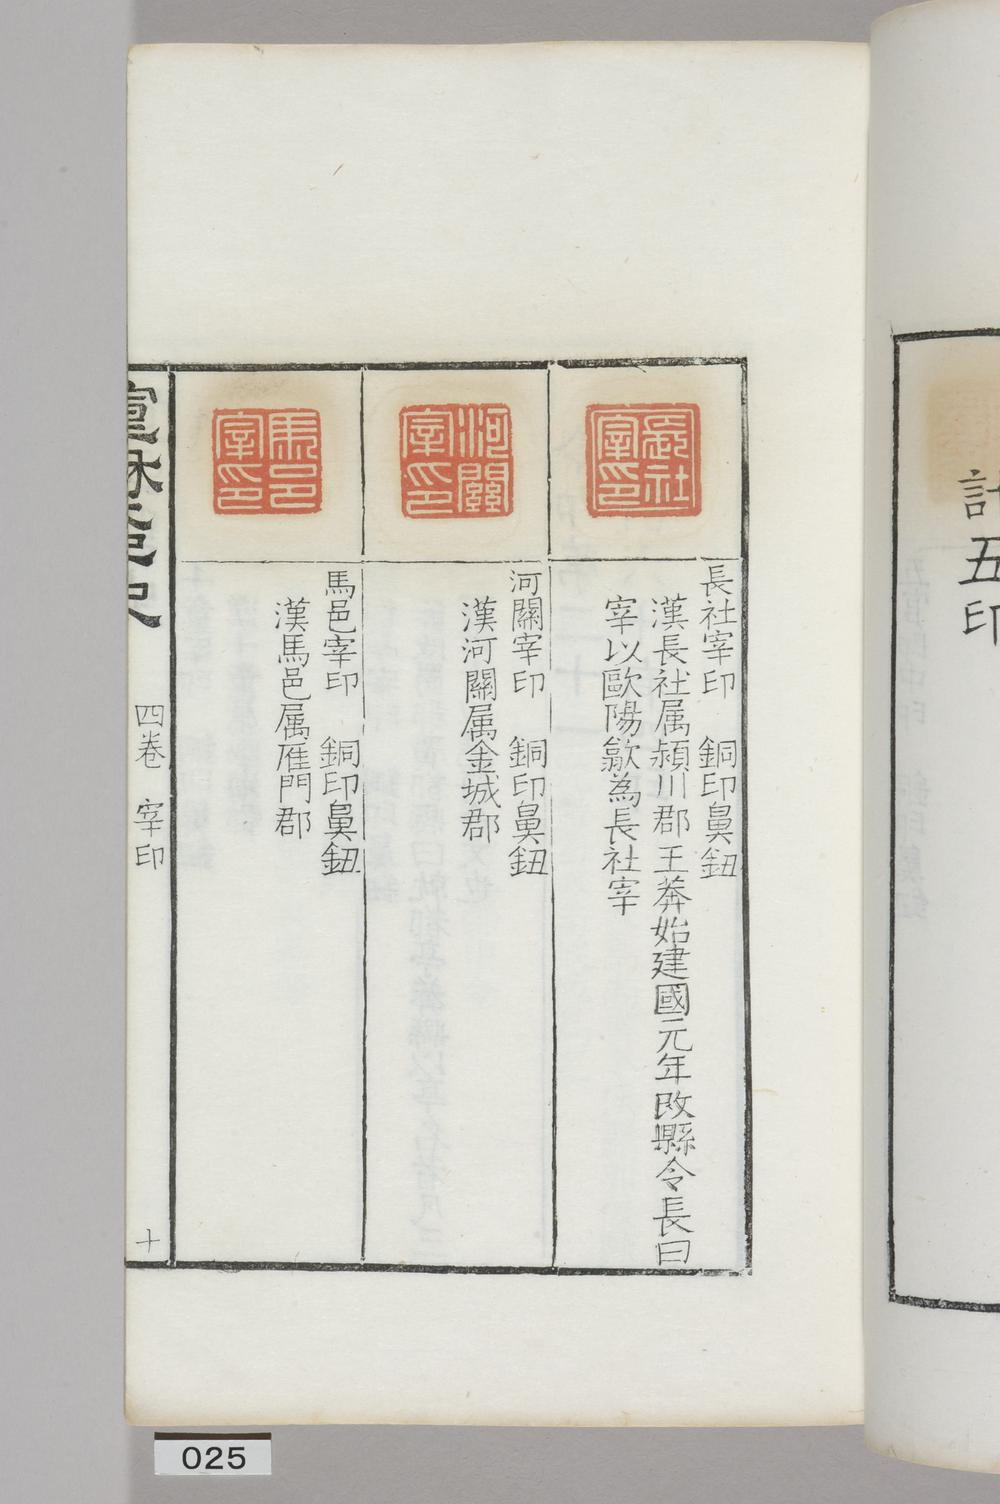 計五印
長社宰印
長社宰印 銅印鼻鈕
漢長社属潁川郡王莽始建國元年改縣令長曰
宰以歐陽歙為長社宰
河關宰印
河關宰印 銅印鼻鈕
漢河關属金城郡
馬邑宰印
馬邑宰印 銅印鼻鈕
漢馬邑属雁門郡
四卷 宰印
十
025